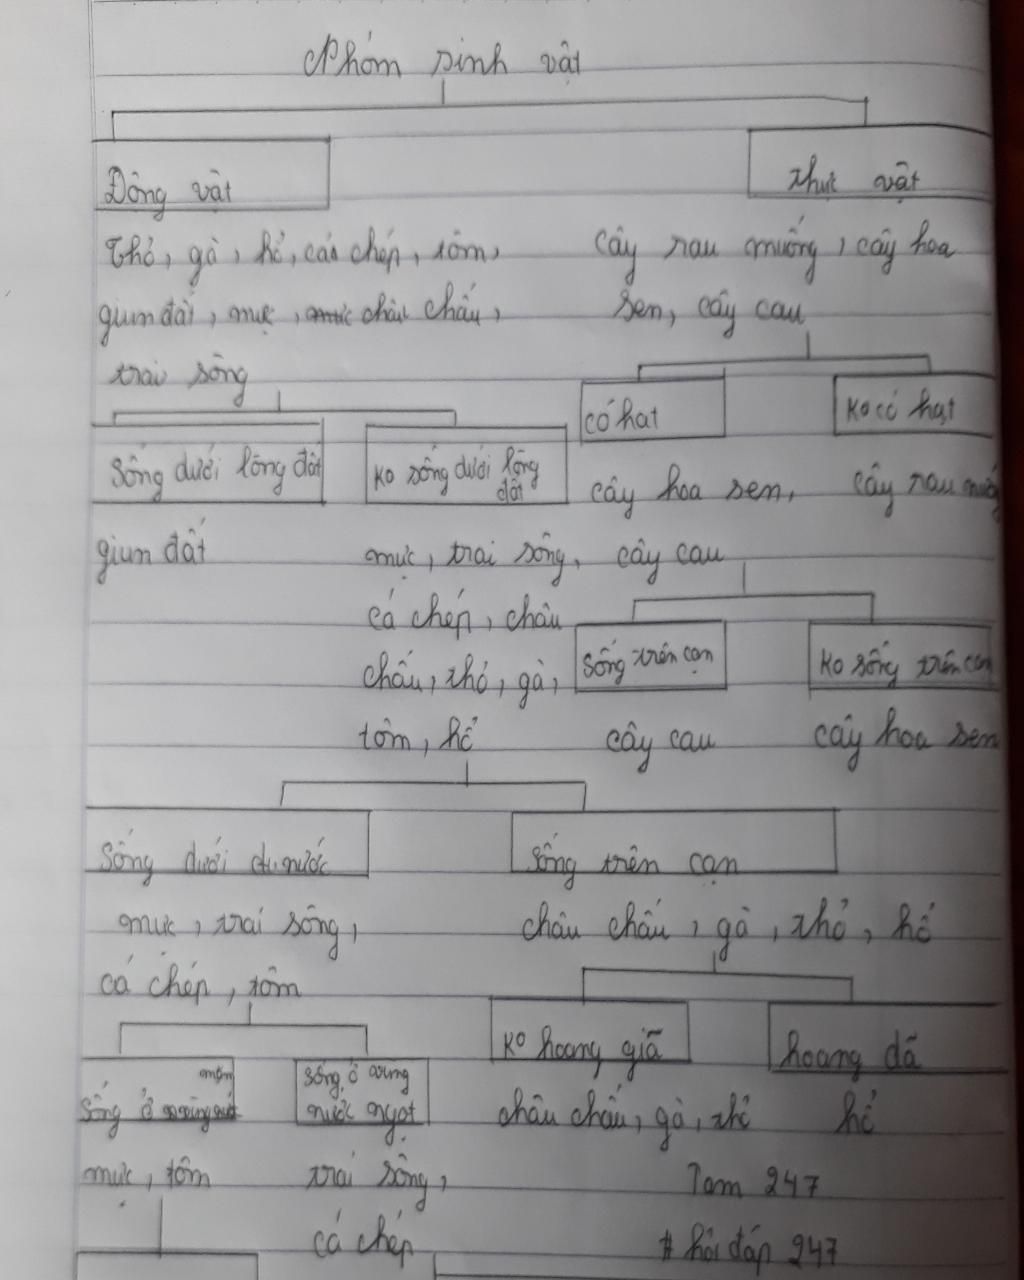 Nhóm sinh vật
Động vật
thực vật
Thỏ, gà, hổ, cá chép, tôm,
giun đất, mực, châu chấu,
trai sông
cây rau muống, cây hoa
sen, cây cau
Sống dưới lòng đất
Ko sống dưới lòng
đất
có hạt
Ko có hạt
giun đất
mực, trai sông,
cá chép, châu
chấu, thỏ, gà,
tôm, hổ
cây hoa sen,
cây cau
cây rau muống
Sống trên cạn
Ko sống trên cạn
cây cau
cây hoa sen
Sống dưới nước
Sống trên cạn
mực, trai sông,
cá chép, tôm
châu chấu, gà, thỏ, hổ
Ko hoang giã
hoang dã
Sống ở
mặn
Sống ở vùng
nước ngọt
châu chấu, gà, thỏ
hổ
mực, tôm
trai sông,
cá chép
Tam 247
# hỏi đáp 247